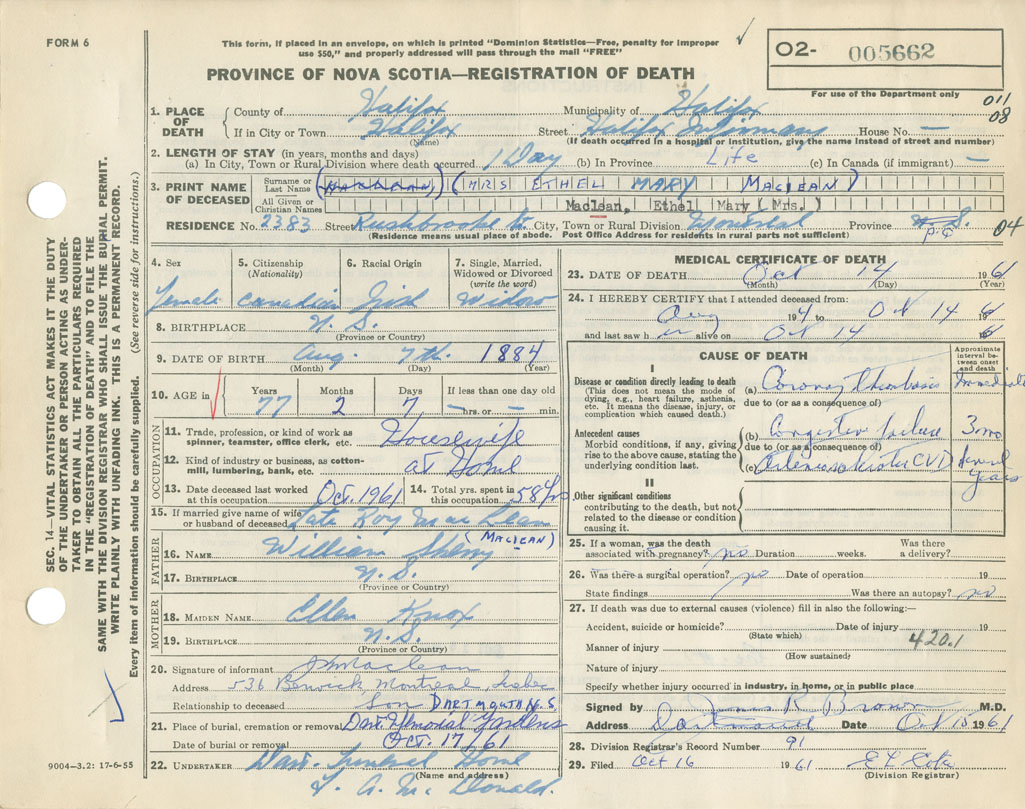 FORM 6
This form, if placed in an envelope, on which is printed "Dominion Statistics—Free, penalty for improper
use $50," and properly addressed will pass through the mail "FREE"
PROVINCE OF NOVA SCOTIA—REGISTRATION OF DEATH
O2- 005662
For use of the Department only
011
08
1. PLACE OF DEATH
County of Halifax Municipality of Halifax
If in City or Town Halifax Street Halifax Infirmary House No. —
(Name) (If death occurred in a hospital or institution, give the name instead of street and number)
2. LENGTH OF STAY (in years, months and days)
(a) In City, Town or Rural Division where death occurred 1 Day (b) In Province Life (c) In Canada (if immigrant) —
3. PRINT NAME OF DECEASED
Surname or Last Name (MRS ETHEL MARY MACLEAN)
All Given or Christian Names Maclean, Ethel Mary (Mrs.)
RESIDENCE No. 2383 Street Rushbrooke St. City, Town or Rural Division Montreal Province N. S. P.Q 04
(Residence means usual place of abode. Post Office Address for residents in rural parts not sufficient)
4. Sex
Female
5. Citizenship
(Nationality)
Canadian
6. Racial Origin
Irish
7. Single, Married,
Widowed or Divorced
(write the word)
Widow
8. BIRTHPLACE N. S.
(Province or Country)
9. DATE OF BIRTH Aug. 7th. 1884
(Month) (Day) (Year)
10. AGE in
Years Months Days If less than one day old
77 2 7 – hrs. or – min.
OCCUPATION
11. Trade, profession or kind of work as
spinner, teamster, office clerk, etc. Housewife
12. Kind of industry or business, as cotton-
mill, lumbering, bank, etc. at Home
13. Date deceased last worked
at this occupation Oct. 1961
14. Total yrs. spent in
this occupation 58 yrs
15. If married give name of wife
or husband of deceased Late Roy MacLean
(MACLEAN)
FATHER
16. NAME William Sherry
17. BIRTHPLACE N. S.
(Province or Country)
MOTHER
18. MAIDEN NAME Ellen Knox
19. BIRTHPLACE N. S.
(Province or Country)
20. Signature of informant Maclean
Address 536 Berwick, Montreal, Quebec
Relationship to deceased Son DARTMOUTH N.S.
21. Place of burial, cremation or removal Dart. Memorial Gardens
Date of burial or removal OCT. 17/61
22. UNDERTAKER Dart. Funeral Home
(Name and address)
A. McDonald.
MEDICAL CERTIFICATE OF DEATH
23. DATE OF DEATH Oct 14 1961
(Month) (Day) (Year)
24. I HEREBY CERTIFY that I attended deceased from:
Aug 19 to Oct 14 196
and last saw h alive on Oct 14 61
CAUSE OF DEATH
Approximate
interval be-
tween onset
and death
I
Disease or condition directly leading to death
(This does not mean the mode of
dying, e.g., heart failure, asthenia,
etc. It means the disease, injury, or
complication which caused death.)
(a) Coronary thrombosis Immediate
due to (or as a consequence of)
Antecedent causes
Morbid conditions, if any, giving
rise to the above cause, stating the
underlying condition last.
(b) Congestive failure 3 mo
due to (or as a consequence of)
(c) Arteriosclerotic CVD Several years
II
Other significant
conditions
contributing to the death, but not
related to the disease or condition
causing it.
25. If a woman, was the death Was there
associated with pregnancy? no Duration weeks. a delivery?
26. Was there a surgical operation? no Date of operation 19
State findings Was there an autopsy? no
27. If death was due to external causes (violence) fill in also the following:—
Accident, suicide or homicide? Date of injury 19
(State which)
420.1
Manner of injury
(How sustained)
Nature of injury
Specify whether injury occurred in industry, in home, or in public place
Signed by James R Brown M.D.
Address Dartmouth Date Oct 15 1961
28. Division Registrar's Record Number 91
29. Filed Oct 16 1961
(Division Registrar)
SEC. 14—VITAL STATISTICS ACT MAKES IT THE DUTY
OF THE UNDERTAKER OR PERSON ACTING AS UNDER-
TAKER TO OBTAIN ALL THE PARTICULARS REQUIRED
IN THE "REGISTRATION OF DEATH" AND TO FILE THE
SAME WITH THE DIVISION REGISTRAR WHO SHALL ISSUE THE BURIAL PERMIT.
WRITE PLAINLY WITH UNFADING INK. THIS IS A PERMANENT RECORD.
Every item of information should be carefully supplied. (See reverse side for instructions.)
9004-3.2: 17-6-55